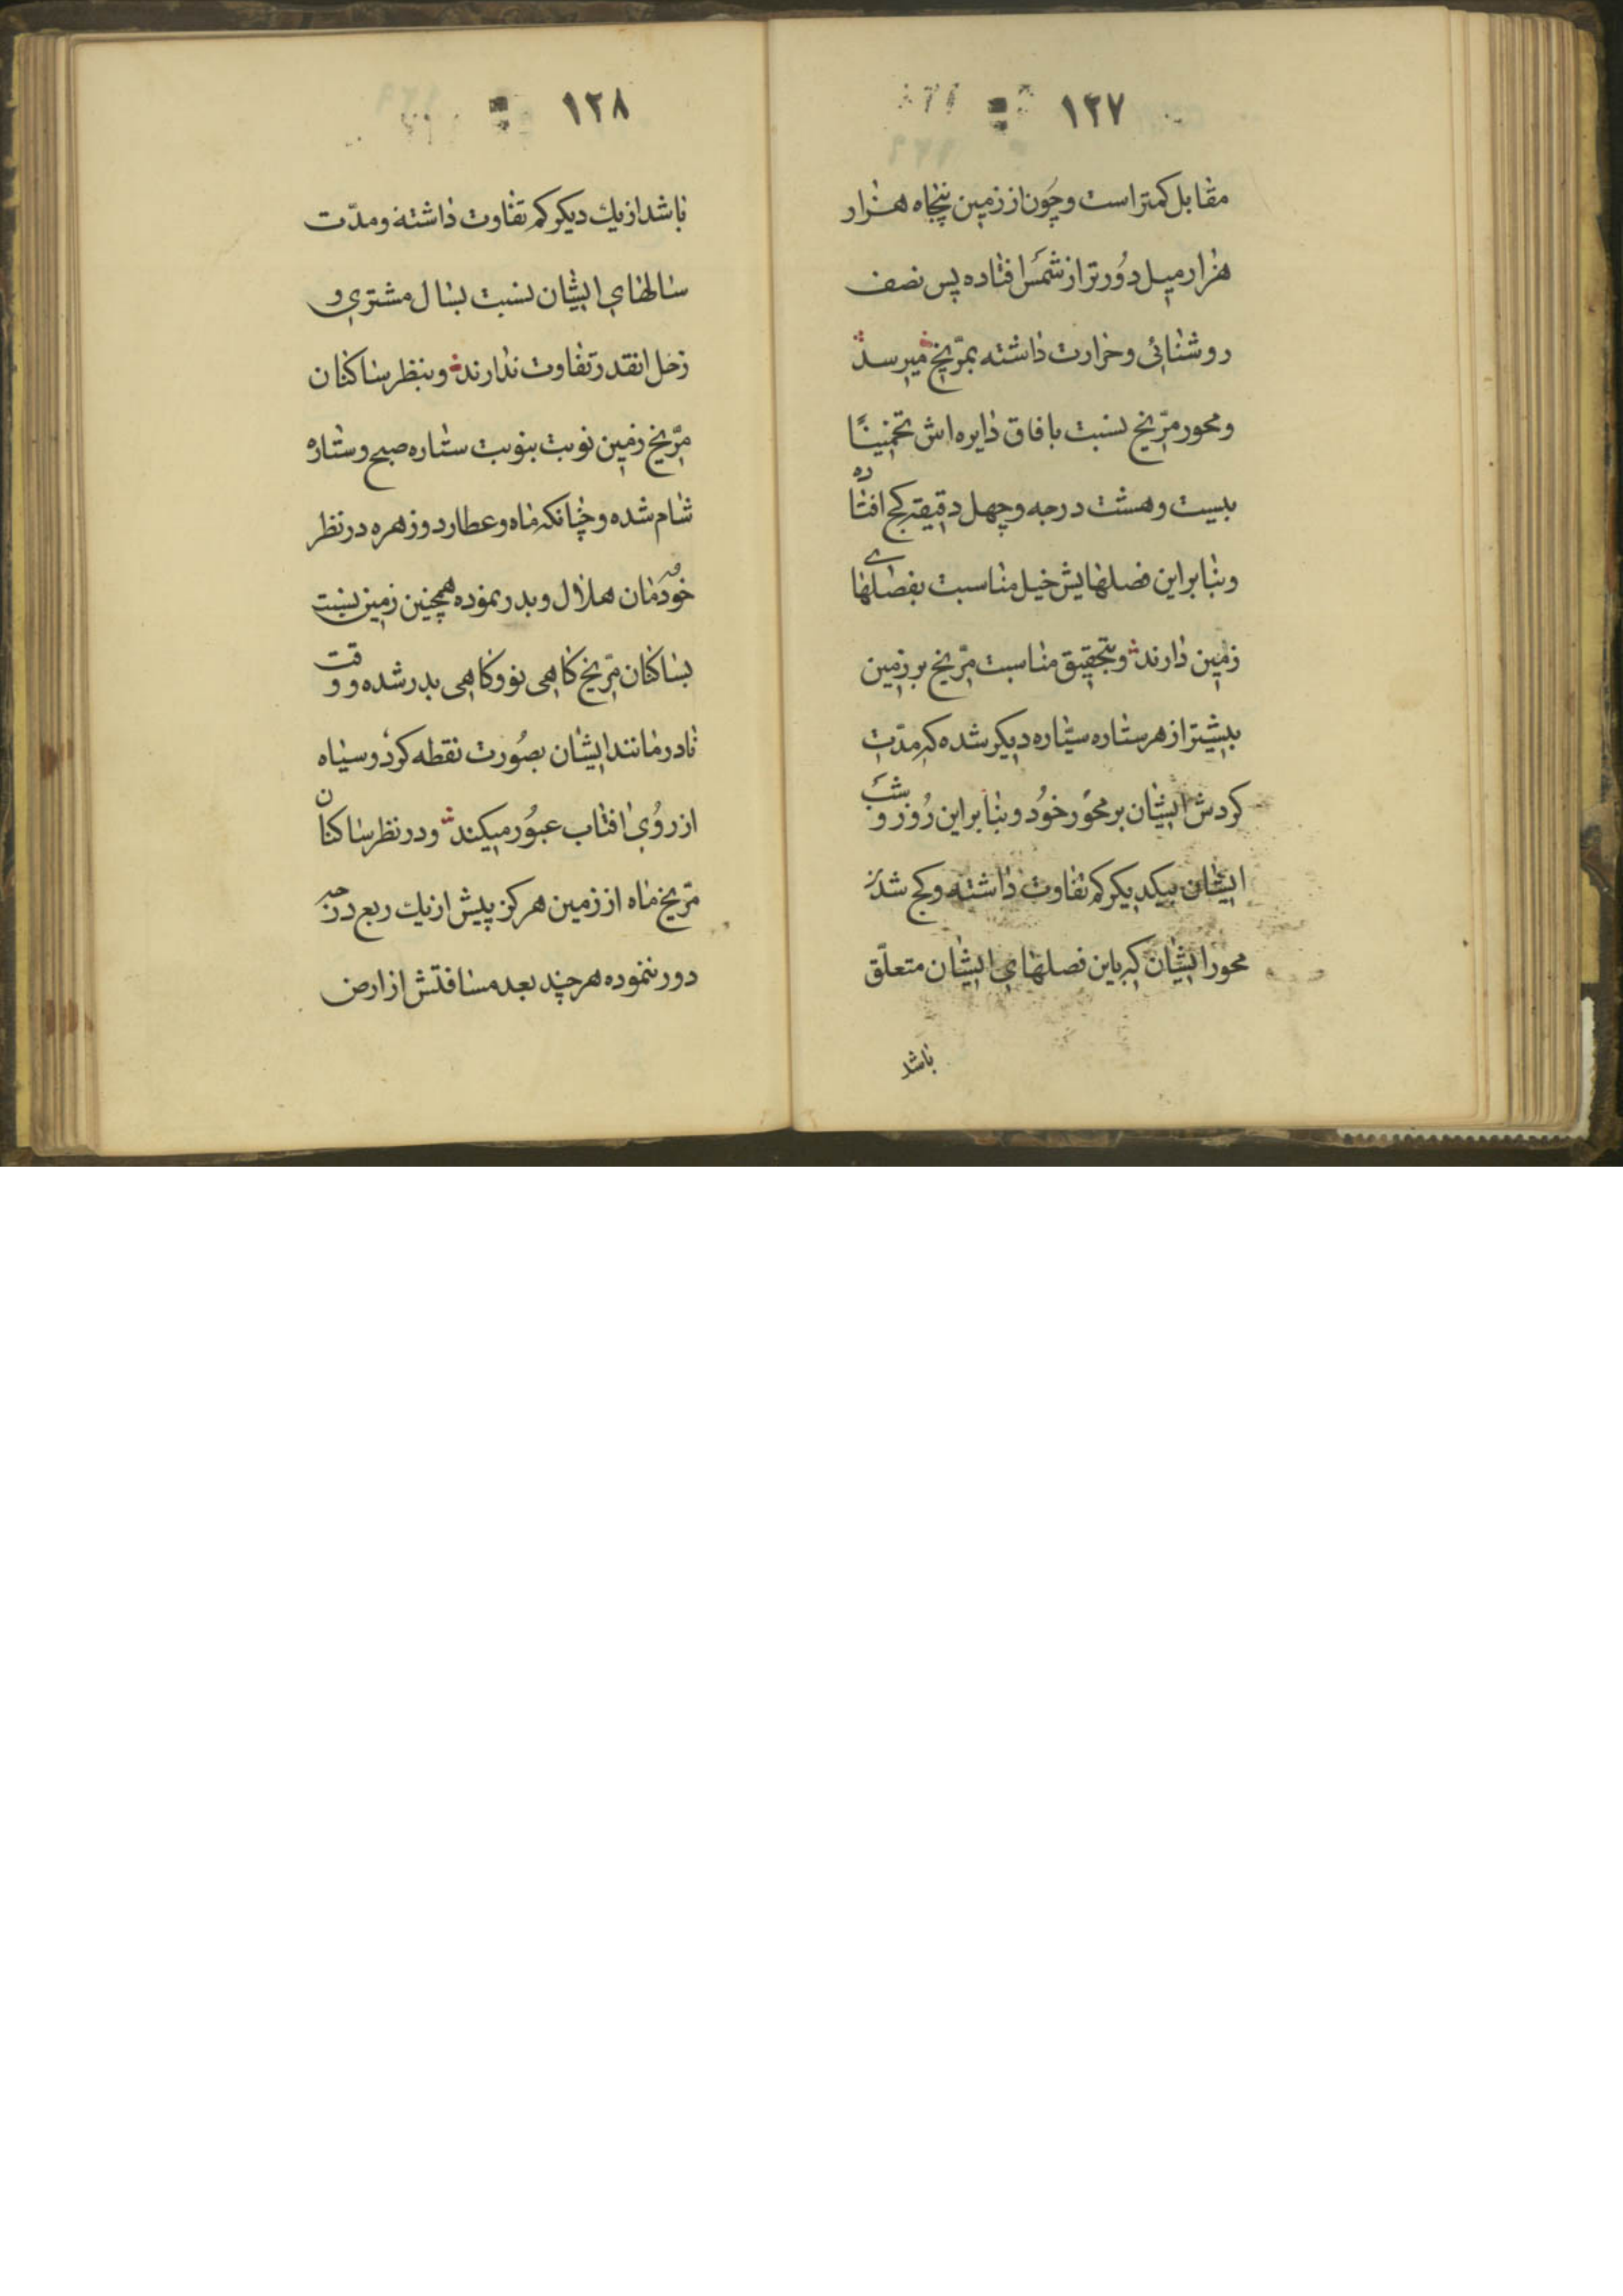 ١٢٧
مقابل كمتر است و چون از زمین پنجاه هزار
هزار میل دورتر از شمس افتاده پس نصف
روشنائی و حرارت داشته بمرّیخ میرسد
و محور مرّیخ نسبت بافاق دایره اش تخمیناً
بیست و هشت درجه و چهل دقیقه كج افتاده
و بنابر این فصلهایش خیلے مناسبت بفصلها
زمین دارند و بتحقیق مناسبت مرّیخ بر زمین
بیشتر از هر ستاره سیّاره دیكر شده كه مدّت
كردش ایشان بر محور خود و بنابر این روز و شب
ایشان بیكدیكر كم تفاوت داشته و كج شدن
محور ایشان كه باین فصلهای ایشان متعلّق
باشد
١٢٨
باشد از یك دیكر كم تفاوت داشته و مدّت
سالهای ایشان نسبت بسال مشتری و
زحل انقدر تفاوت ندارند و بنظر ساكنان
مرّیخ زمین نوبت بنوبت ستاره صبح و ستاره
شام شده و چنانكه ماه و عطارد و زهره در نظر
خودمان هلال و بدر نموده همچنین زمین نسبت
بساكنان مرّیخ كاهی نو و كاهی بدر شده و وقت
نادر مانند ایشان بصورت نقطه كرد و سیاه
از روی افتاب عبور میكند و در نظر ساكنان
مرّیخ ماه از زمین هركز پیش از یك ربع درجه
دور ننموده هر چند بعد مسافتش از ارض